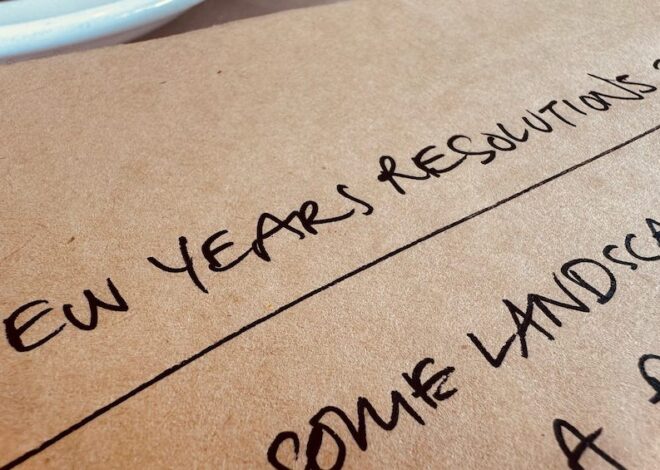 EW YEARS RESOLUTIONS
SOME LANDSCA
A